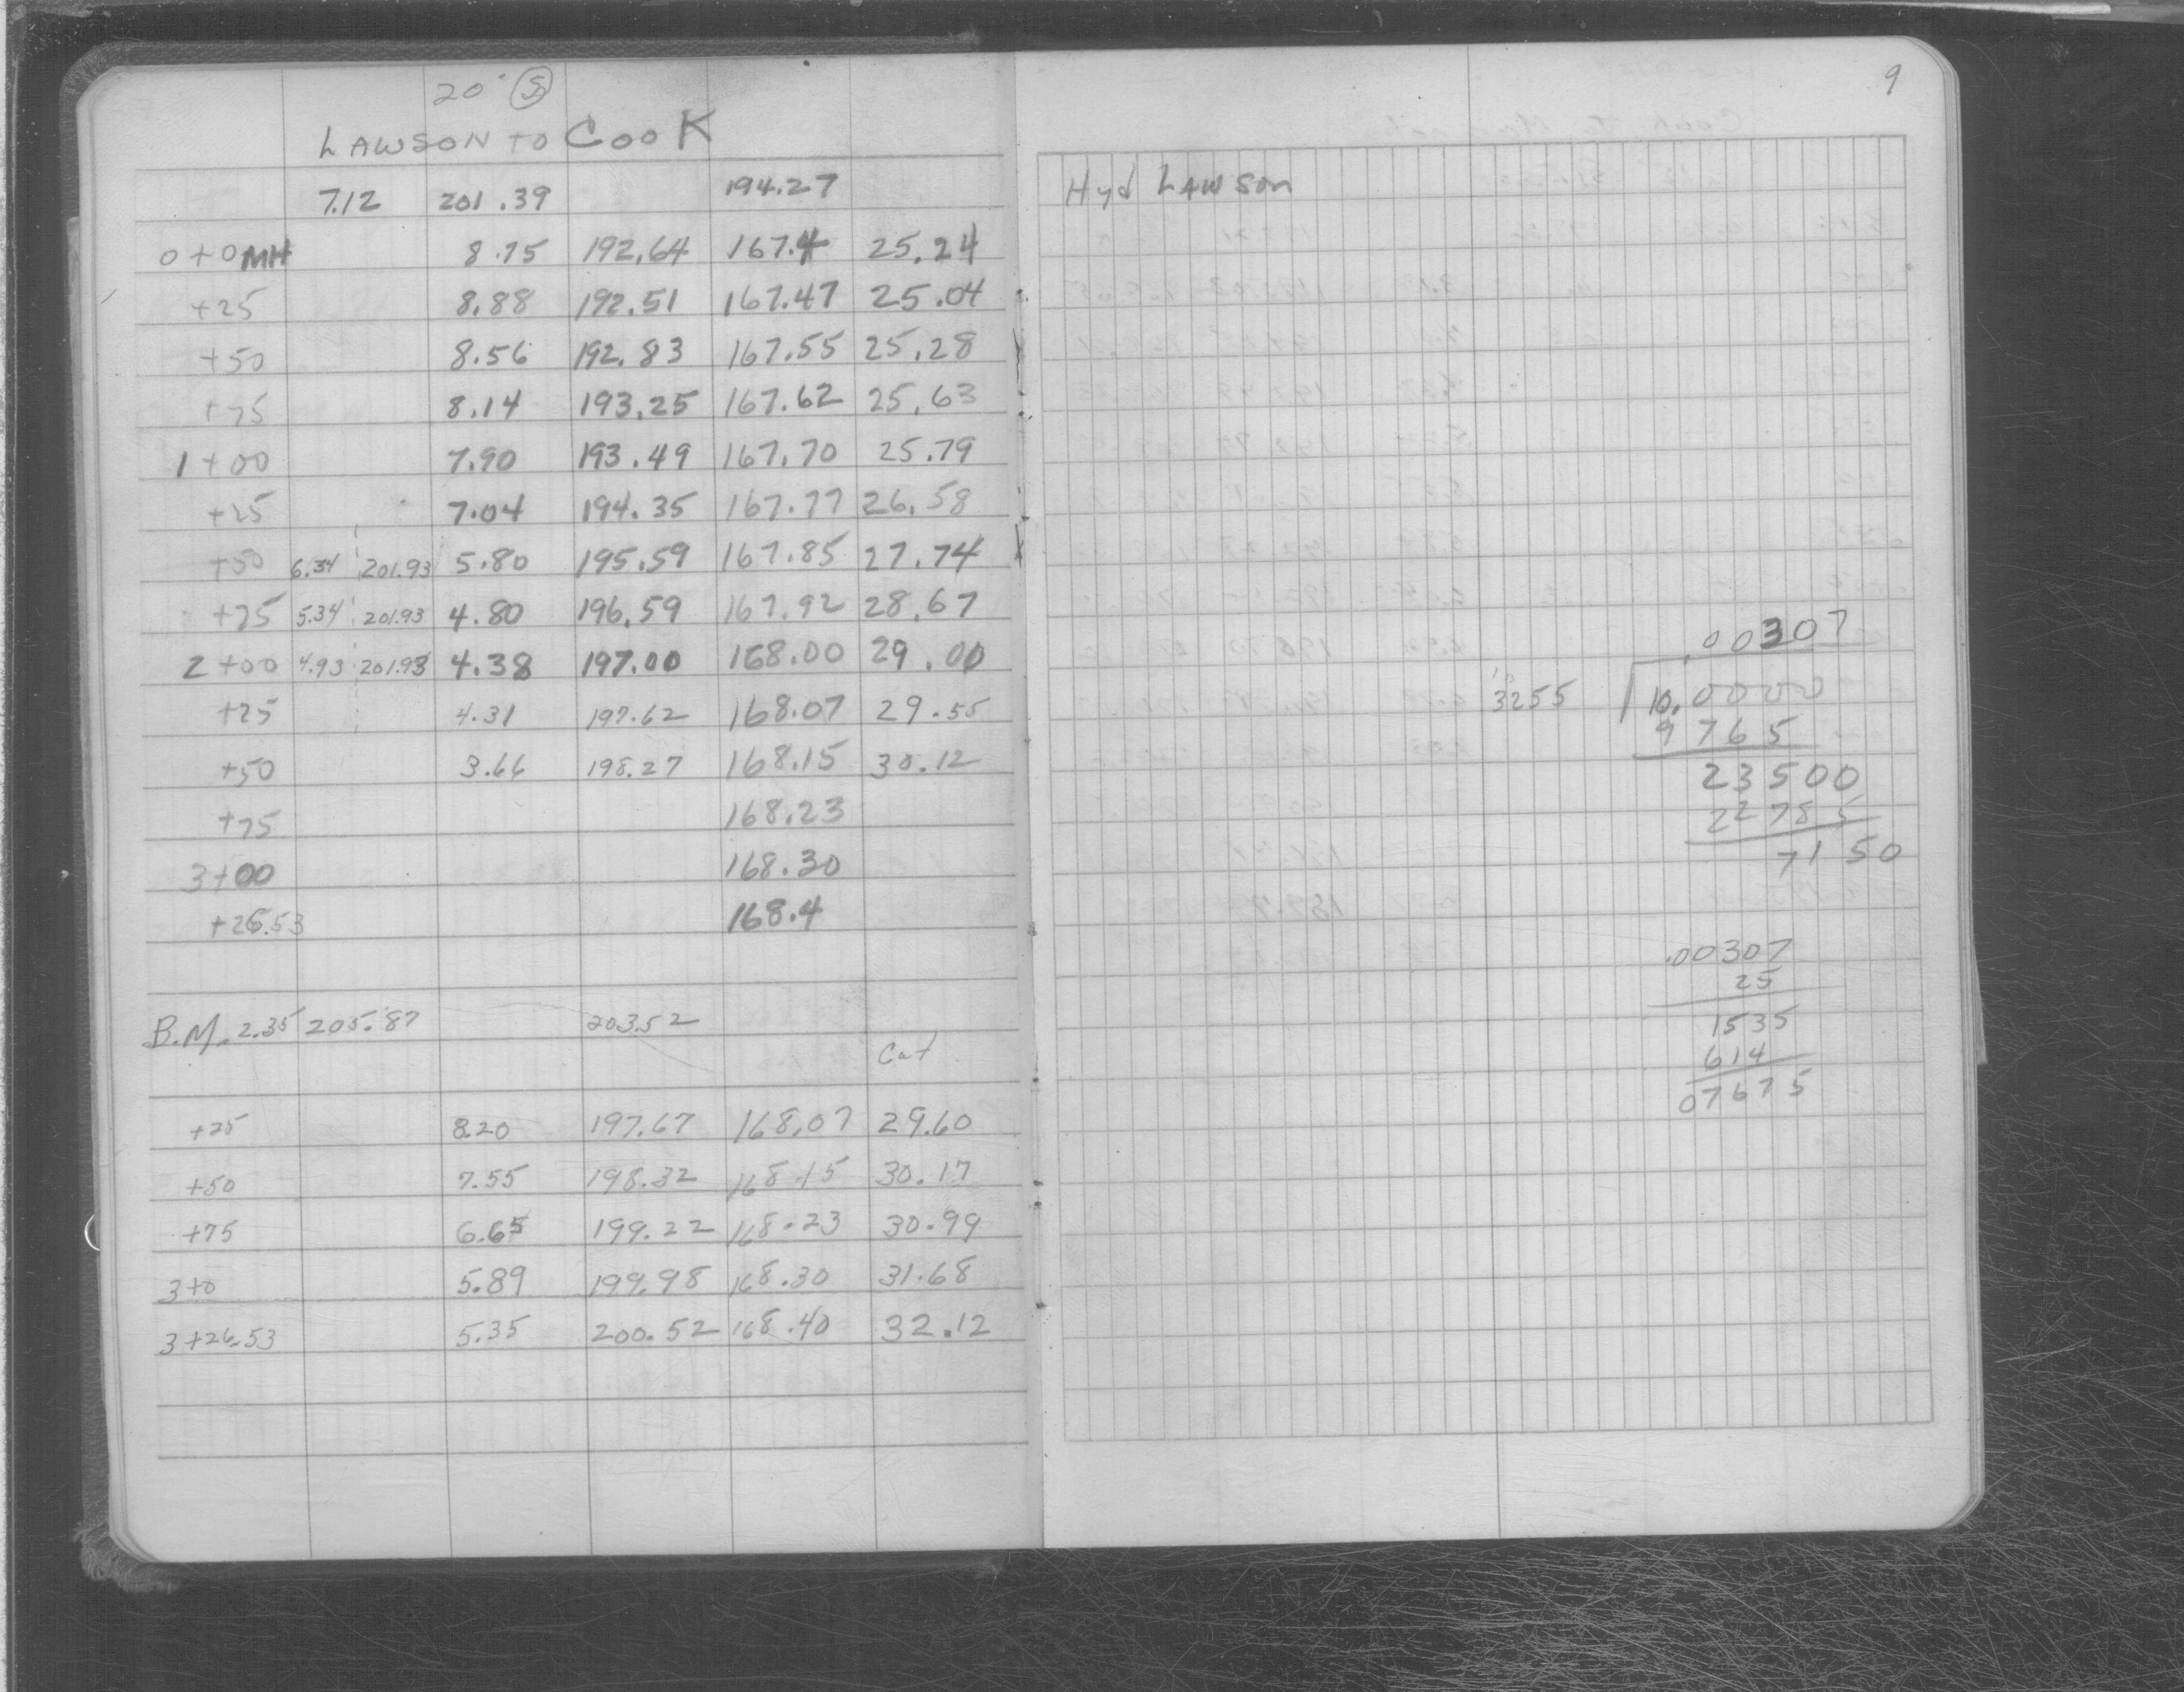 20' S
LAWSON TO COOK
7.12 201.39 194.27
0+0 MH 8.75 192.64 167.4 25.24
+25 8.88 192.51 167.47 25.04
+50 8.56 192.83 167.55 25.28
+75 8.14 193.25 167.62 25.63
1+00 7.90 193.49 167.70 25.79
+25 7.04 194.35 167.77 26.58
+50 6.34 201.93 5.80 195.59 167.85 27.74
+75 5.34 201.93 4.80 196.59 167.92 28.67
2+00 4.93 201.93 4.38 197.00 168.00 29.00
+25 4.31 197.62 168.07 29.55
+50 3.66 198.27 168.15 30.12
+75 168.23
3+00 168.30
+26.53 168.4
B.M. 2.35 205.87 203.52
Cut
+25 8.20 197.67 168.07 29.60
+50 7.55 198.32 168.15 30.17
+75 6.65 199.22 168.23 30.99
3+0 5.89 199.98 168.30 31.68
3+26.53 5.35 200.52 168.40 32.12
9
Hyd LAWSON
.00307
3255 10.0000
9765
23500
22785
7150
.00307
25
1535
614
07675